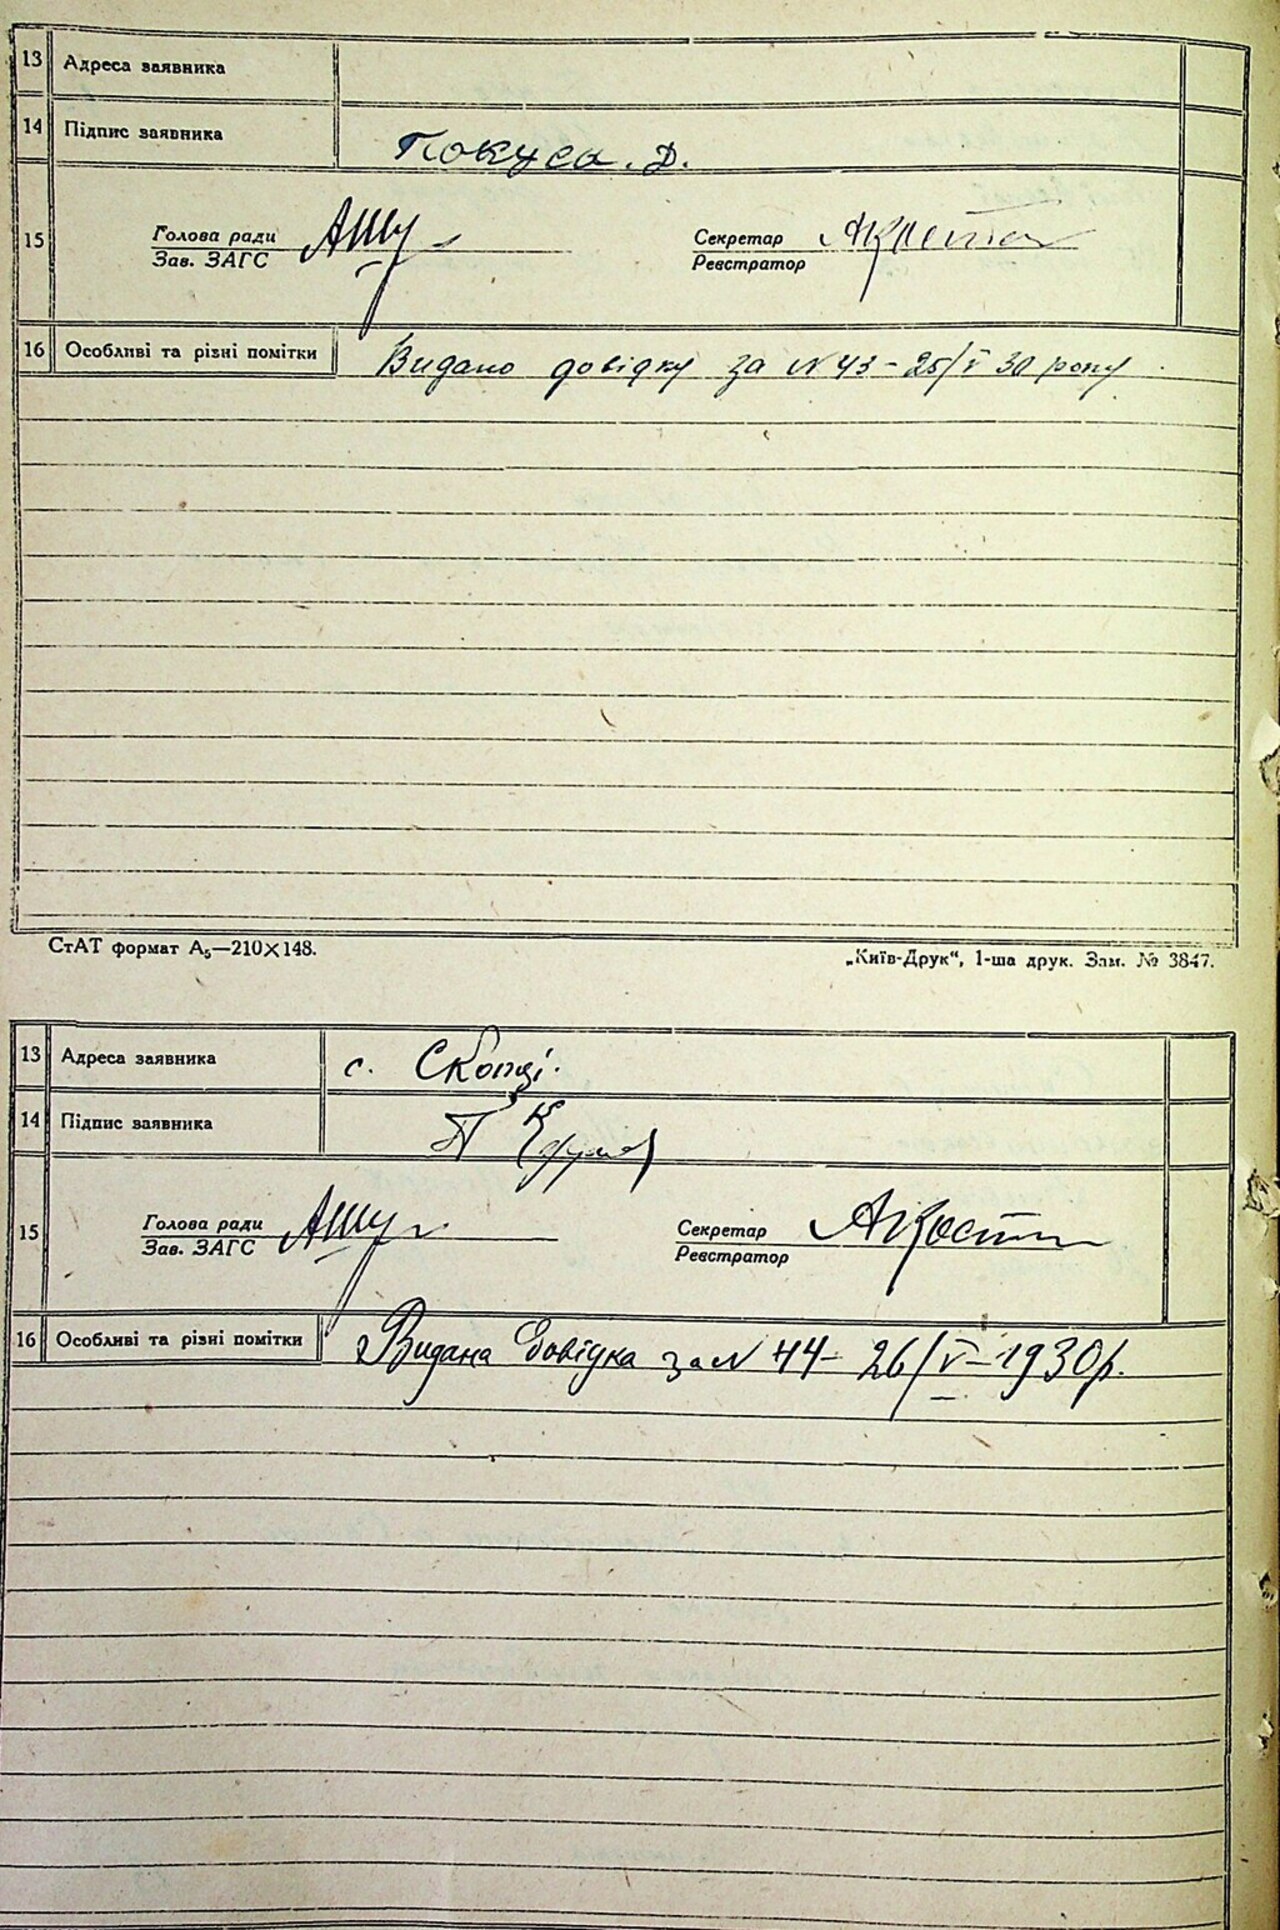 13 Адреса заявника
14 Підпис заявника Покуса. Д.
15 Голова ради Секретар
Зав. ЗАГС Реєстратор
16 Особливі та різні помітки Видано довідку за N 43 - 25/V 30 року
СтАТ формат А₅—210×148. „Київ-Друк“, 1-ша друк. Зам. № 3847.
13 Адреса заявника с. Скопці.
14 Підпис заявника
15 Голова ради Секретар
Зав. ЗАГС Реєстратор
16 Особливі та різні помітки Видана Довідка за N 44 - 26/V - 1930 р.